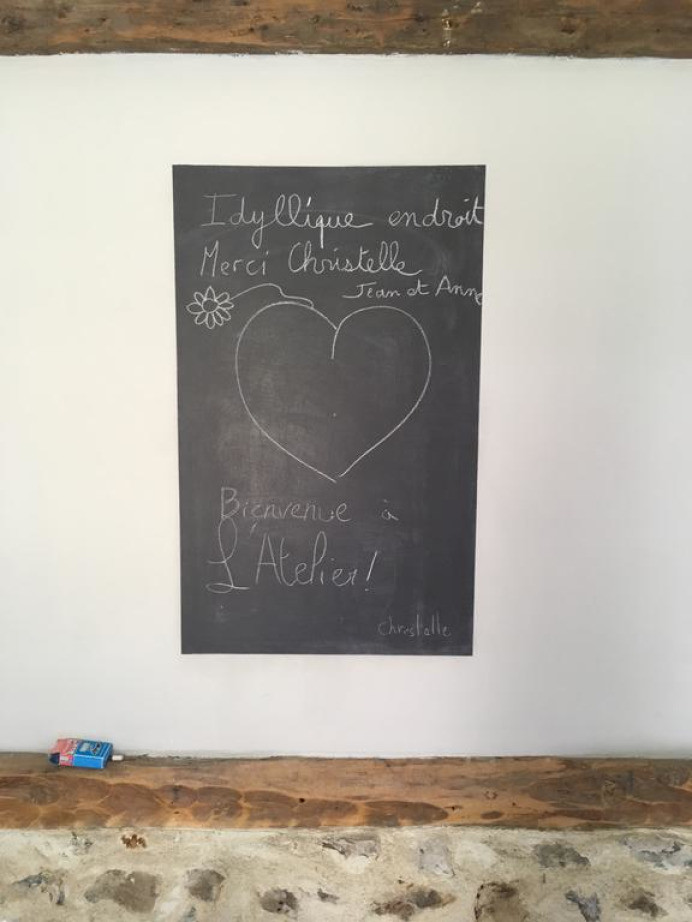 Idyllique endroit
Merci Christelle
Jean et Anne
Bienvenue à
L'Atelier!
Christelle